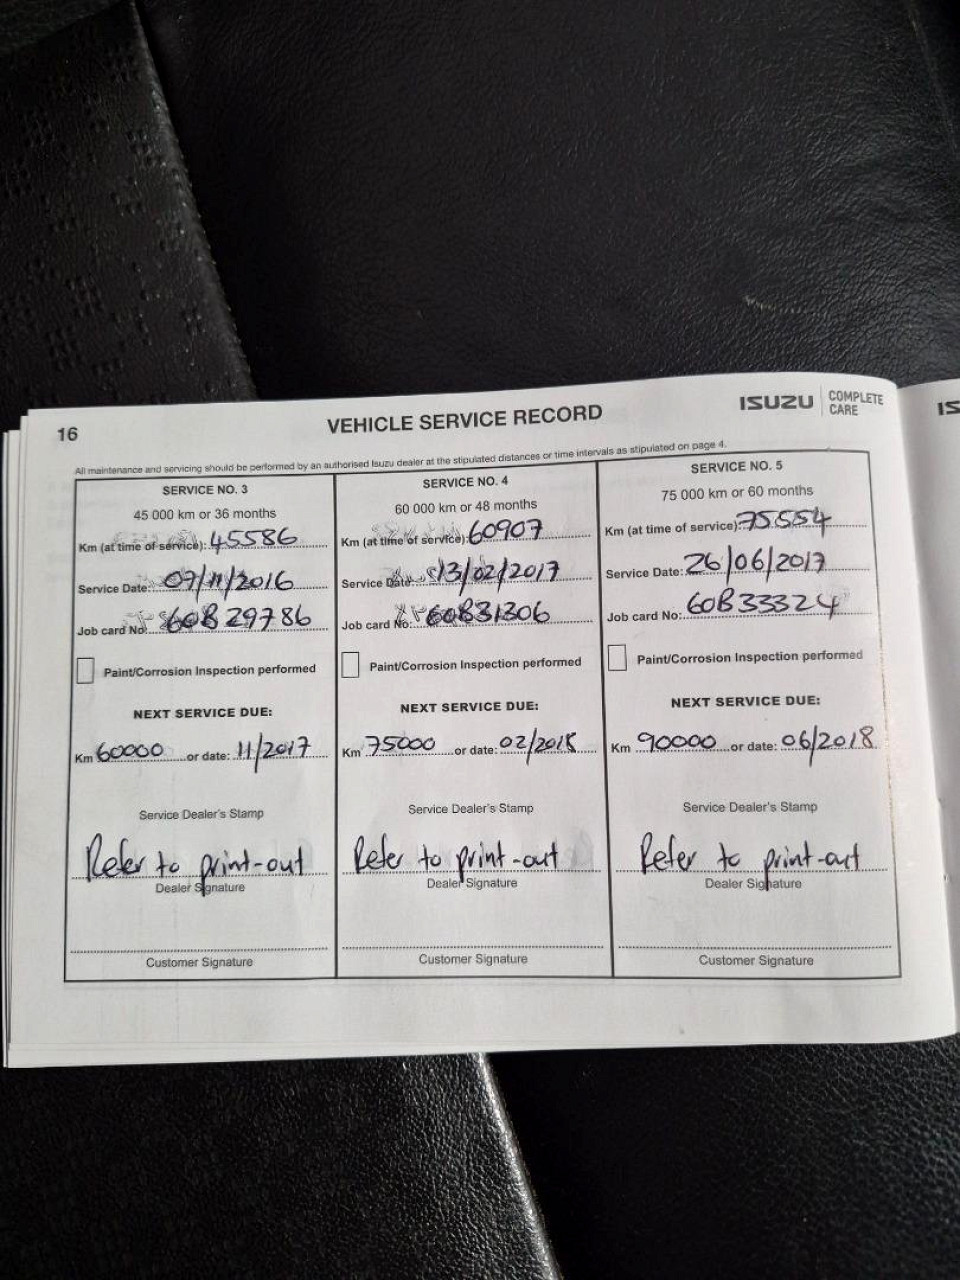 16
VEHICLE SERVICE RECORD
ISUZU COMPLETE CARE
IS
All maintenance and servicing should be performed by an authorised Isuzu dealer at the stipulated distances or time intervals as stipulated on page 4.
SERVICE NO. 3
45 000 km or 36 months
Km (at time of service): 45586
Service Date: 07/11/2016
Job card No: 60B29786
Paint/Corrosion Inspection performed
NEXT SERVICE DUE:
Km 60000 or date: 11/2017
Service Dealer's Stamp
Refer to print-out
Dealer Signature
Customer Signature
SERVICE NO. 4
60 000 km or 48 months
Km (at time of service): 60907
Service Date: 13/02/2017
Job card No: 60B31306
Paint/Corrosion Inspection performed
NEXT SERVICE DUE:
Km 75000 or date: 02/2018
Service Dealer's Stamp
Refer to print-out
Dealer Signature
Customer Signature
SERVICE NO. 5
75 000 km or 60 months
Km (at time of service): 75554
Service Date: 26/06/2017
Job card No: 60B33324
Paint/Corrosion Inspection performed
NEXT SERVICE DUE:
Km 90000 or date: 06/2018
Service Dealer's Stamp
Refer to print-out
Dealer Signature
Customer Signature